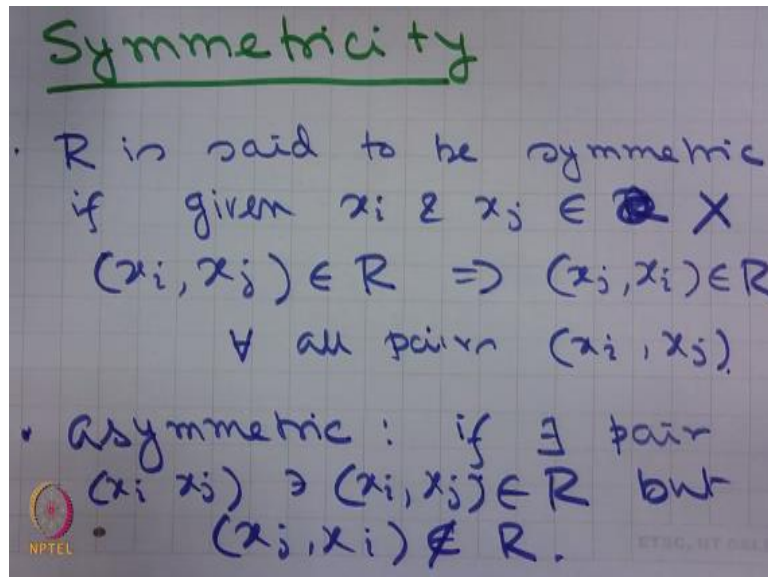 Symmetricity
. R is said to be symmetric
if given xi & xj ∈ X
(xi, xj) ∈ R => (xj, xi) ∈ R
∀ all pairs (xi, xj)
. asymmetric : if ∃ pair
(xi xj) ∋ (xi, xj) ∈ R but
(xj, xi) ∉ R.
NPTEL
ETSC, IIT DELHI